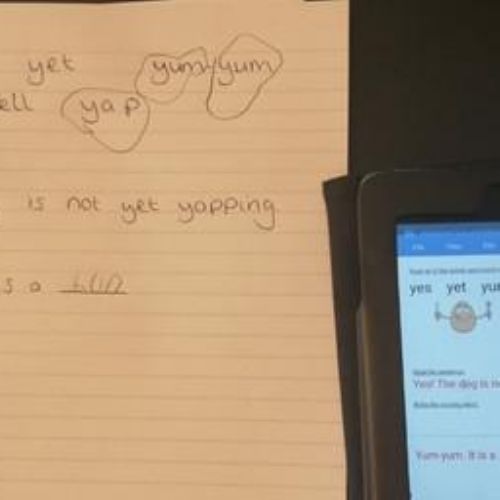 yet yum yum
ell yap
is not yet yapping
s a
yes yet yu
Yes! The dog is n
Yum yum. It is a